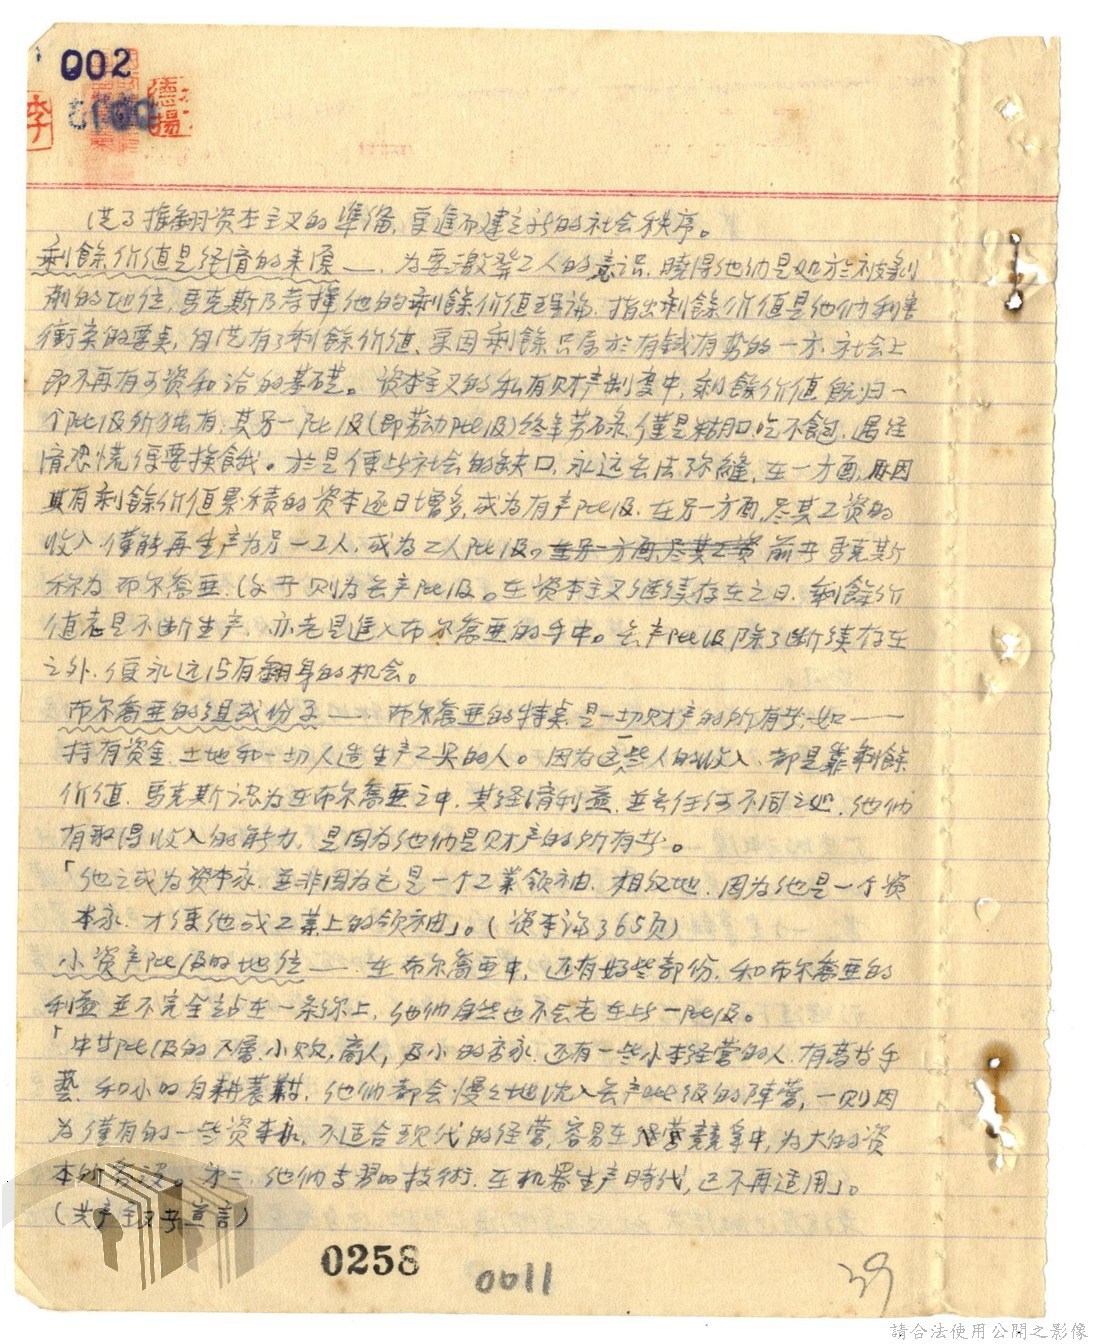 002
李
德揚
造了推翻资本主义的準备，並進而建立新的社会秩序。
剩餘价值是经済的来源——，为要激發工人的意识，曉得他们是处於被剝
削的地位，馬克斯乃发揮他的剩餘价值理論，指出剩餘价值是他们利害
衝突的要桌，自从有了剩餘价值，並因剩餘只属於有钱有势的一方，社会上
即不再有可资和洽的基础。资本主义的私有财产制度中，剩餘价值既归一
个阶级所独有，其另一阶级（即劳动阶级）终年劳碌，僅是糊口，吃不飽，遇经
済恐慌便要挨餓。於是便此社会的缺口，永远无法弥縫，在一方面，因
其有剩餘价值累积的资本逐日增多，成为有产阶级，在另一方面，尽其工资的
收入，僅能再生产为另一工人，成为工人阶级。在另一方面，尽其工资 前者馬克斯
称为布尔喬亜，後者则为无产阶级。在资本主义继续存在之日，剩餘价
值老是不断生产，亦老是進入布尔喬亜的手中。无产阶级除了断续存在
之外，便永远没有翻身的机会。
布尔喬亜的组成份子—— 布尔喬亜的特桌是一切财产的所有者，如——
持有资金，土地和一切人造生产工具的人。因为这些人的收入，都是靠剩餘
价值，馬克斯认为在布尔喬亜之中，其经済利益，並无任何不同之处，他们
有取得收入的能力，是因为他们是财产的所有者。
「他之成为资本家，並非因为它是一个工業领袖，相反地，因为他是一个资
本家，才使他成工業上的领袖」。（资本论365页）
小资产阶级的地位—— 在布尔喬亜中，还有好些部份，和布尔喬亜的
利益並不完全站在一条線上，他们自然也不会老在此一阶级。
「中等阶级的下層，小贩，商人，及小的方家，还有一些小本经营的人，有普替手
藝，和小的自耕農等，他们都会慢々地沈入无产阶级的陣营，一则因
为僅有的一些资本，不适合现代的经营，容易在经营競争中，为大的资
本所吞没。第二，他们专習的技術，在机器生产時代，已不再适用」。
（共产主义者宣言）
0258
0011
39
請合法使用公開之影像